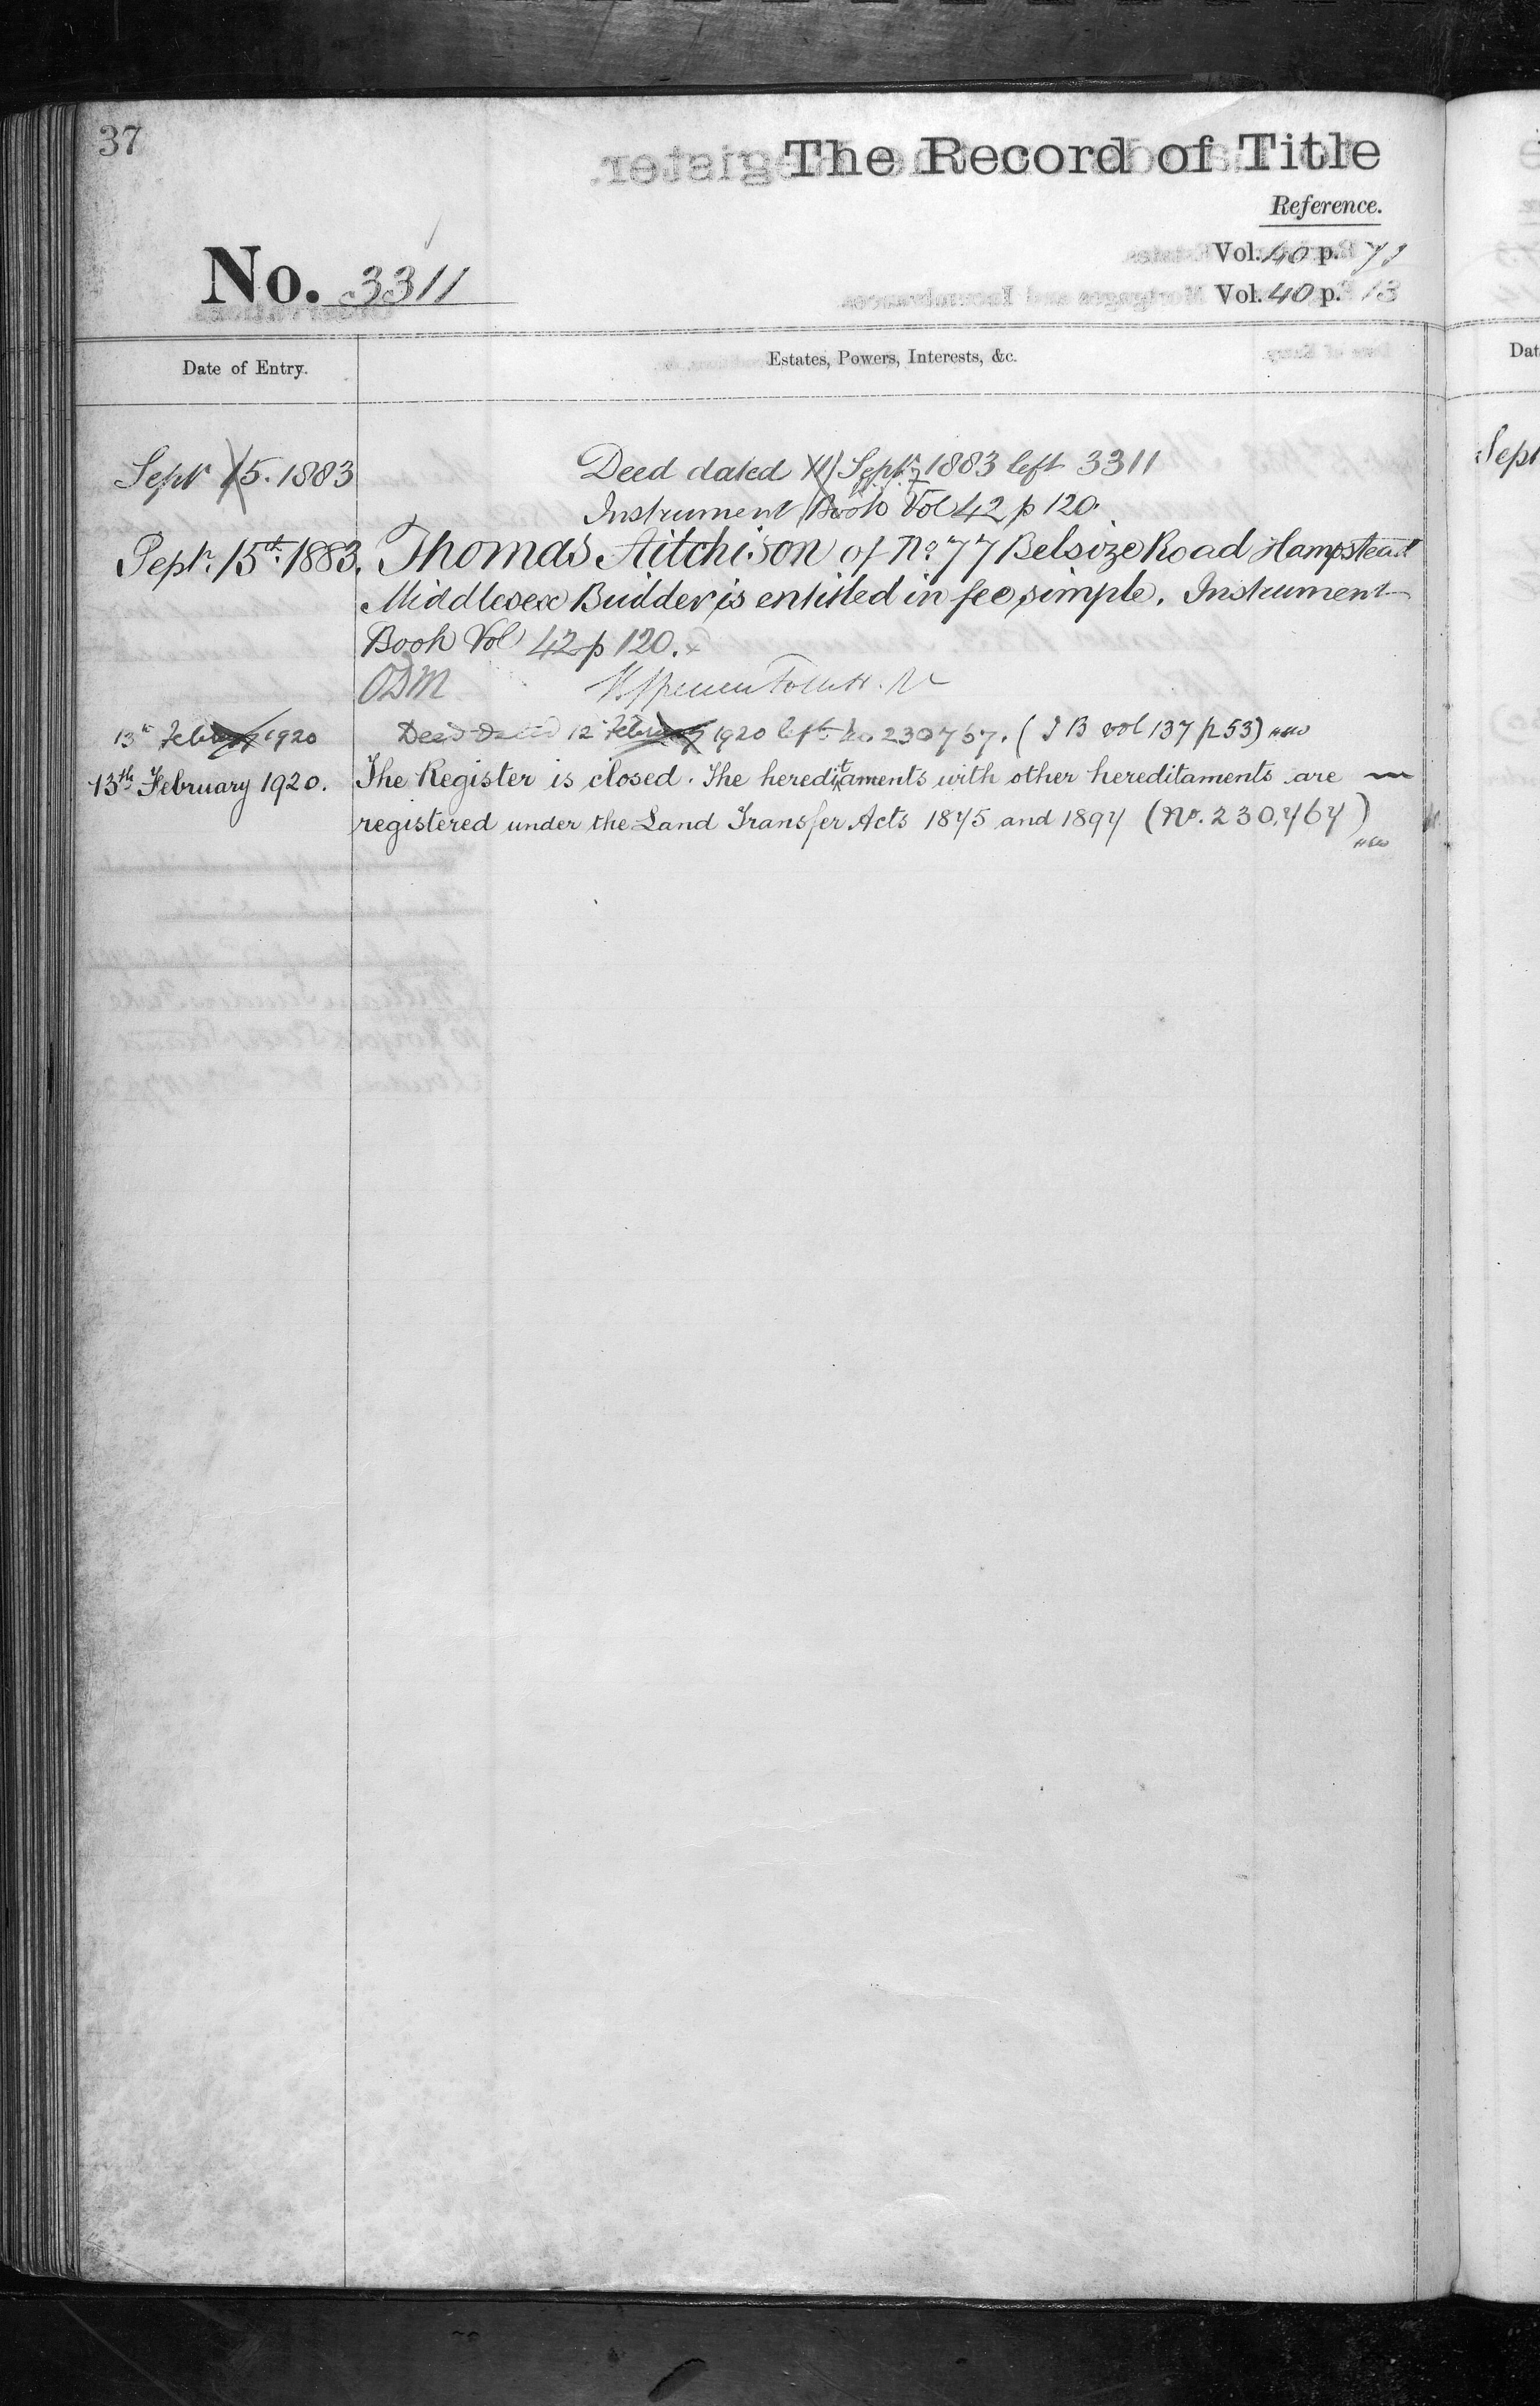 37
The Record of Title
Reference.
No. 3311
Vol. 40 p. 71
Vol. 40 p. 13
Date of Entry.
Estates, Powers, Interests, &c.
Dat
Sept 15. 1883
Deed dated 11 Septr 1883 left 3311
Sept
Instrument Book Vol 42 p 120.
Septr. 15th. 1883. Thomas Aitchison of No 77 Belsize Road Hampstead
Middlesex Builder is entitled in fee simple. Instrument
Book Vol 42 p 120.
ODM
13th February 1920 Deed dated 12th February 1920 left no. 230767. (I B vol 137 p 53)
13th February 1920. The Register is closed. The hereditaments with other hereditaments are
registered under the Land Transfer Acts 1875 and 1897 (No. 230,767)